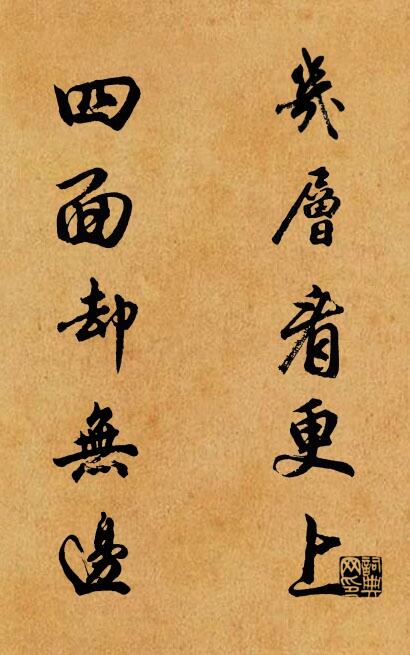 幾層看更上
四面却無邊
詞典网印